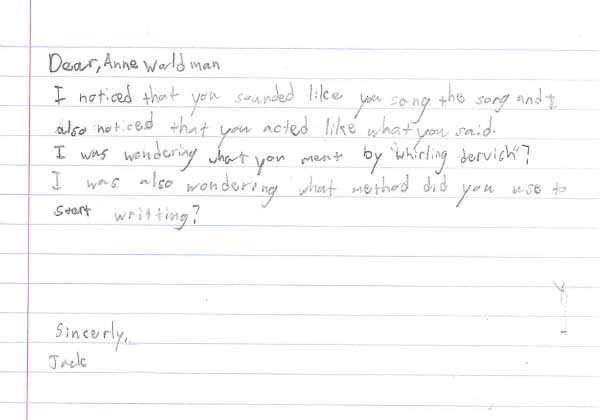 Dear, Anne Waldman
I noticed that you sounded like you sang the song and I
also noticed that you acted like what you said.
I was wondering what you ment by "whirling dervich"?
I was also wondering what method did you use to
start writting?
Sincerly,
Jack